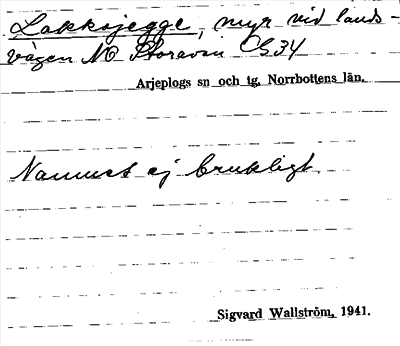 Lakkajegge, myr vid lands-
vägen NO Storavan G34
Arjeplogs sn och tg, Norrbottens län.
Namnet ej brukligt.
Sigvard Wallström, 1941.